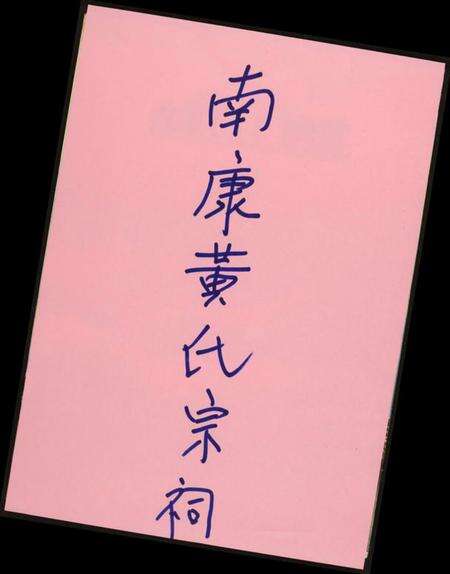 南康黃氏宗祠